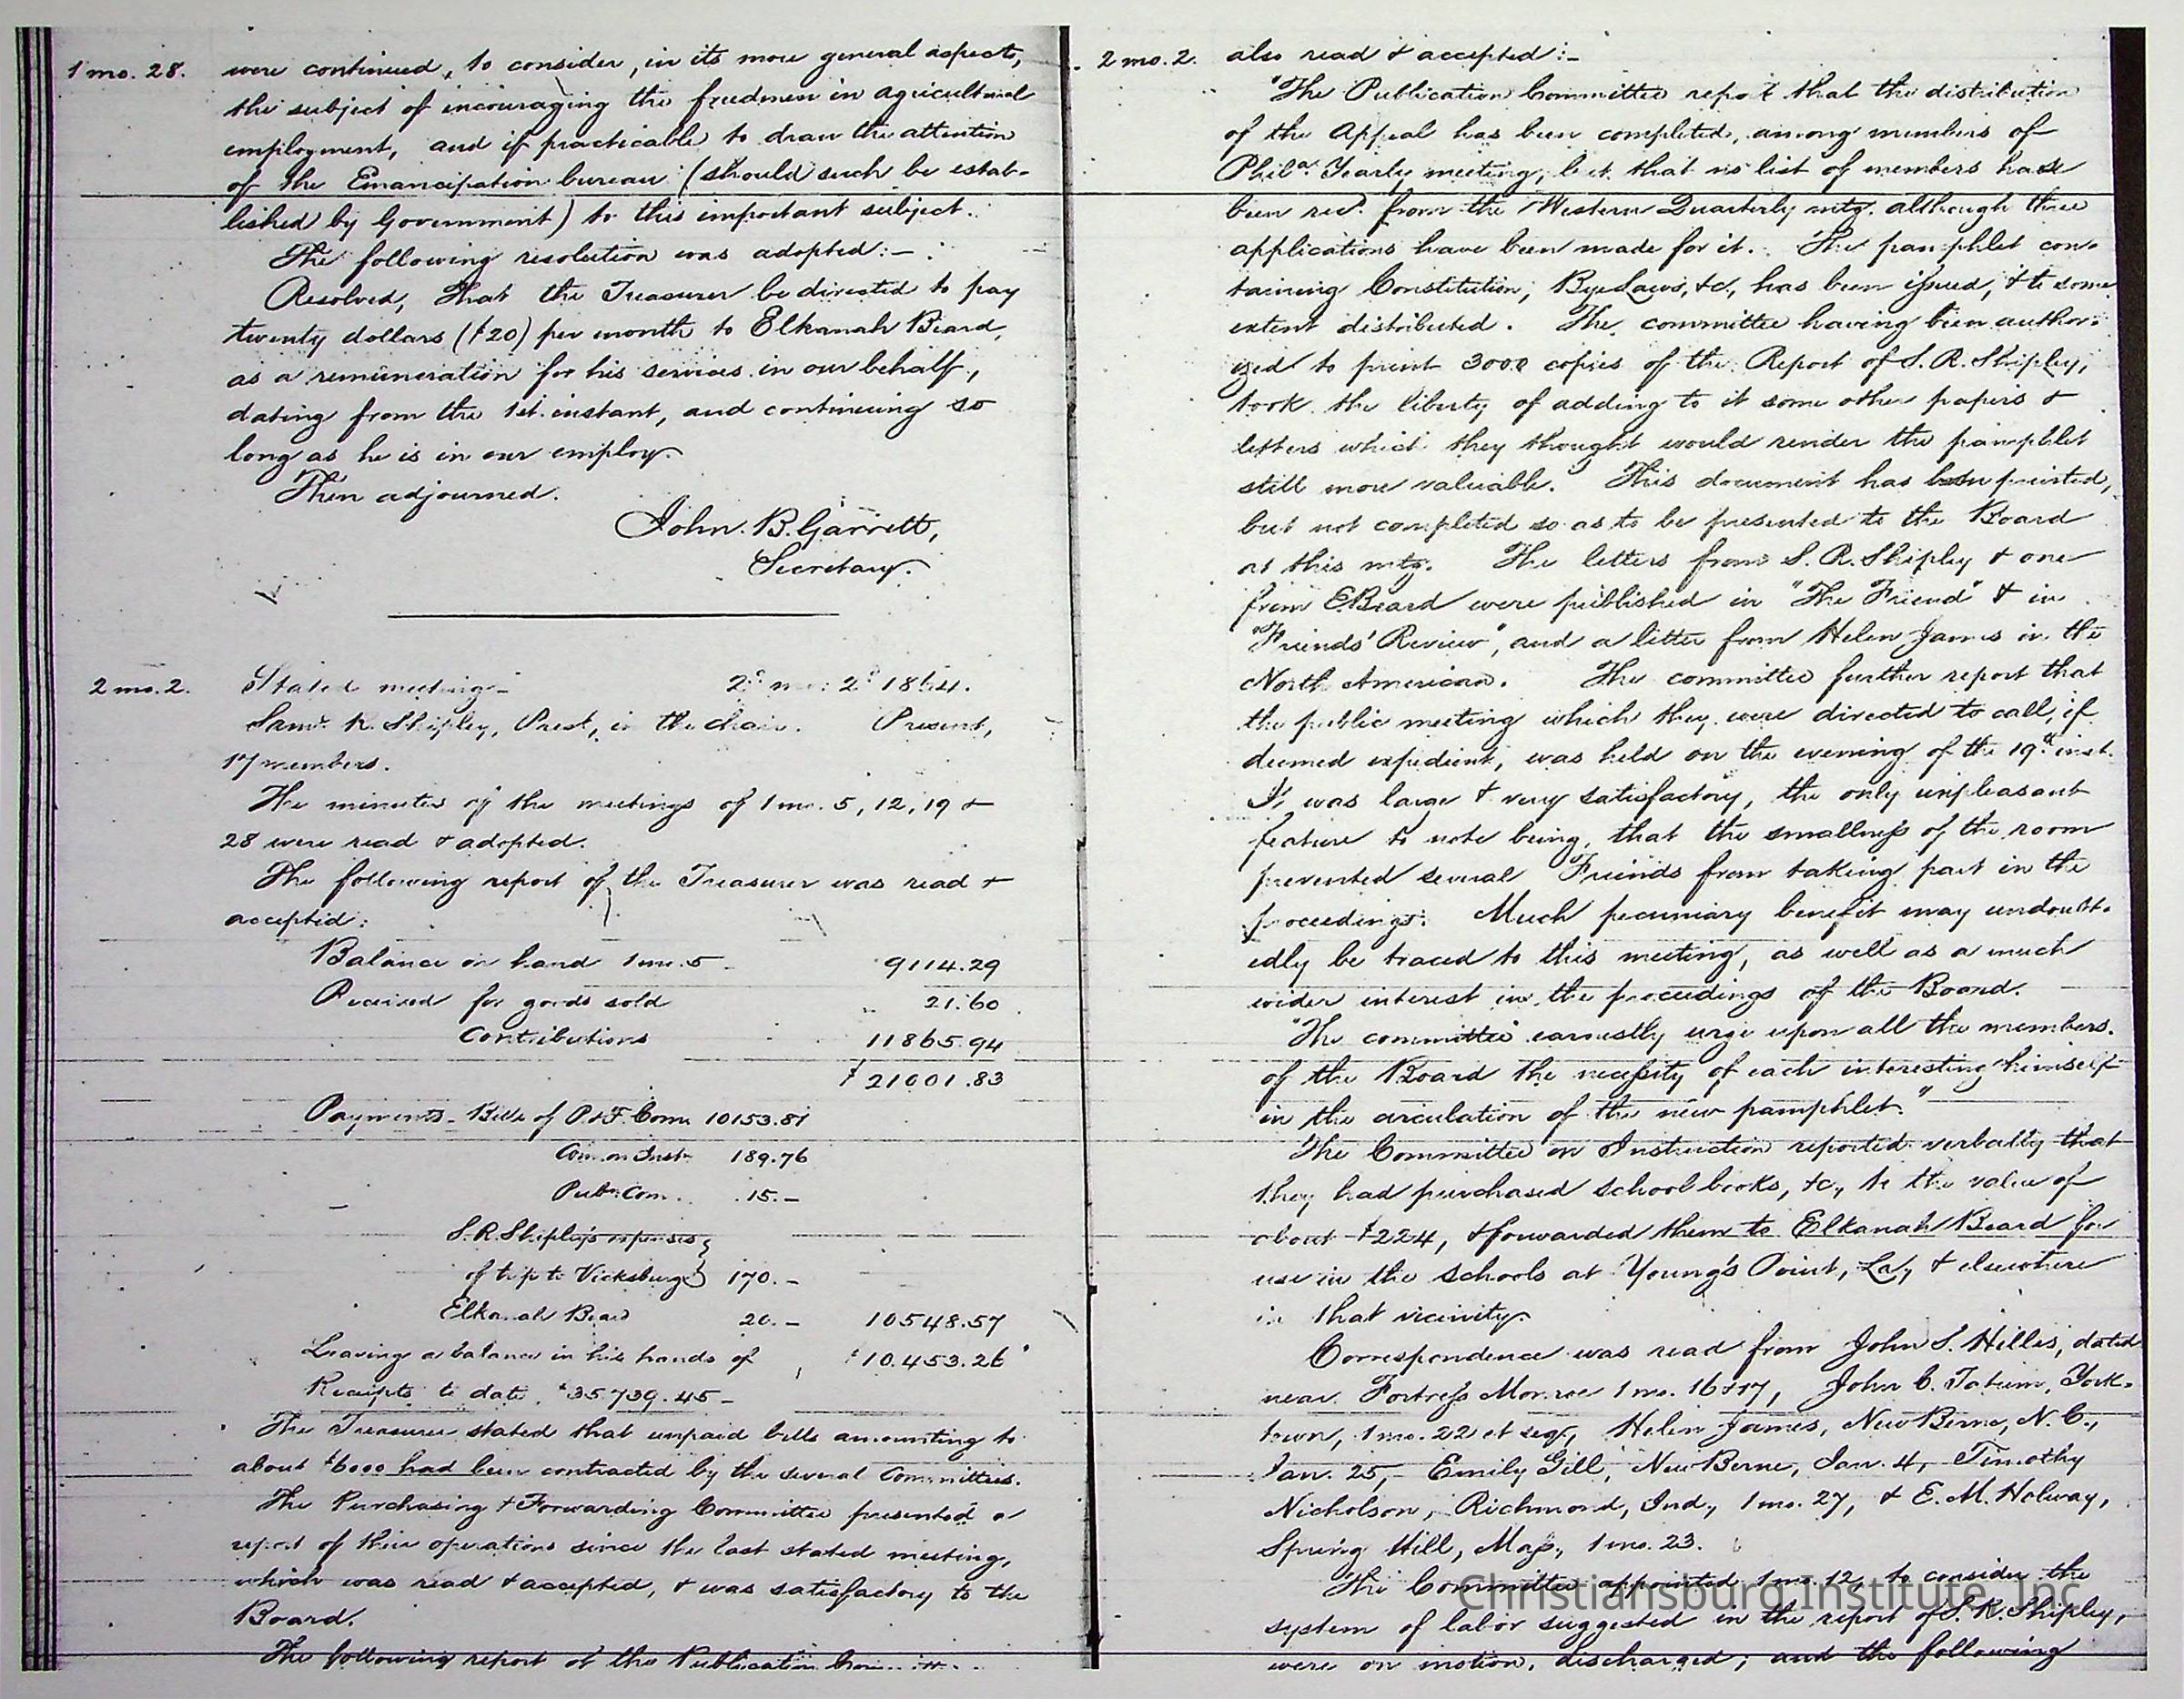 1 mo. 28. were continued, to consider, in its more general aspects,
the subject of encouraging the freedmen in agricultural
employment, and if practicable to draw the attention
of the Emancipation bureau (should such be estab-
lished by Government) to this important subject.
The following resolution was adopted:-
Resolved, That the Treasurer be directed to pay
twenty dollars ($20) per month to Elkanah Beard,
as a remuneration for his services in our behalf,
dating from the 1st instant, and continuing so
long as he is in our employ.
Then adjourned.
John B. Garrett,
Secretary.
2 mo. 2. Stated meeting- 2d mo: 2d 1864.
Saml. R. Shipley, Prest, in the chair. Present,
17 members.
The minutes of the meetings of 1 mo. 5, 12, 19 &
28 were read & adopted.
The following report of the Treasurer was read &
accepted:
Balance on hand 1 mo. 5 9114.29
Received for goods sold 21.60
Contributions 11865.94
$21001.83
Payments- Bills of P&F. Com. 10153.81
Com. on Inst. 189.76
Pubn. Com. 15.-
S.R. Shipley's expenses
of trip to Vicksburg 170.-
Elkanah Beard 20.- 10548.57
Leaving a balance in his hands of $10.453.26
Receipts to date, $35.739.45-
The Treasurer stated that unpaid bills amounting to
about $6000 had been contracted by the several Committees.
The Purchasing & Forwarding Committee presented a
report of their operations since the last stated meeting,
which was read & accepted, & was satisfactory to the
Board.
The following report of the Publication
2 mo. 2. also read & accepted:-
"The Publication Committee report that the distribution
of the Appeal has been completed, among members of
Phila. Yearly meeting, but that no list of members have
been recd. from the Western Quarterly mtg. although three
applications have been made for it. The pamphlet con-
taining Constitution, Bye Laws, &c, has been issued, & to some
extent distributed. The committee having been author-
ized to print 3000 copies of the Report of S. R. Shipley,
took the liberty of adding to it some other papers &
letters which they thought would render the pamphlet
still more valuable. This document has been printed,
but not completed so as to be presented to the Board
at this mtg. The letters from S. R. Shipley & one
from E Beard were published in "The Friend" & in
"Friends' Review", and a letter from Helen James in the
North American. The committee further report that
the public meeting which they were directed to call, if
deemed expedient, was held on the evening of the 19th inst.
It was large & very satisfactory, the only unpleasant
feature to note being, that the smallness of the room
prevented several Friends from taking part in the
proceedings. Much pecuniary benefit may undoubt-
edly be traced to this meeting, as well as a much
wider interest in the proceedings of the Board.
"The committee earnestly urge upon all the members
of the Board the necessity of each interesting himself
in the circulation of the new pamphlet."
The Committee on Instruction reported verbally that
they had purchased school books, &c, to the value of
about $224, & forwarded them to Elkanah Beard for
use in the schools at Young's Point, La, & elsewhere
in that vicinity.
Correspondence was read from John S. Hilles, dated
near Fortress Monroe 1 mo. 16 & 17, John C. Tatum, York-
town, 1 mo. 22 et seq, Helen James, New Berne, N. C.,
Jan. 25,- Emily Gill, New Berne, Jan. 4, Timothy
Nicholson, Richmond, Ind, 1 mo. 27, & E. M. Holway,
Spring Hill, Mass., 1 mo. 23.
The Committee appointed 1 mo. 12, to consider the
system of labor suggested in the report of S. R. Shipley,
were on motion, discharged; and the following
Christiansburg Institute, Inc